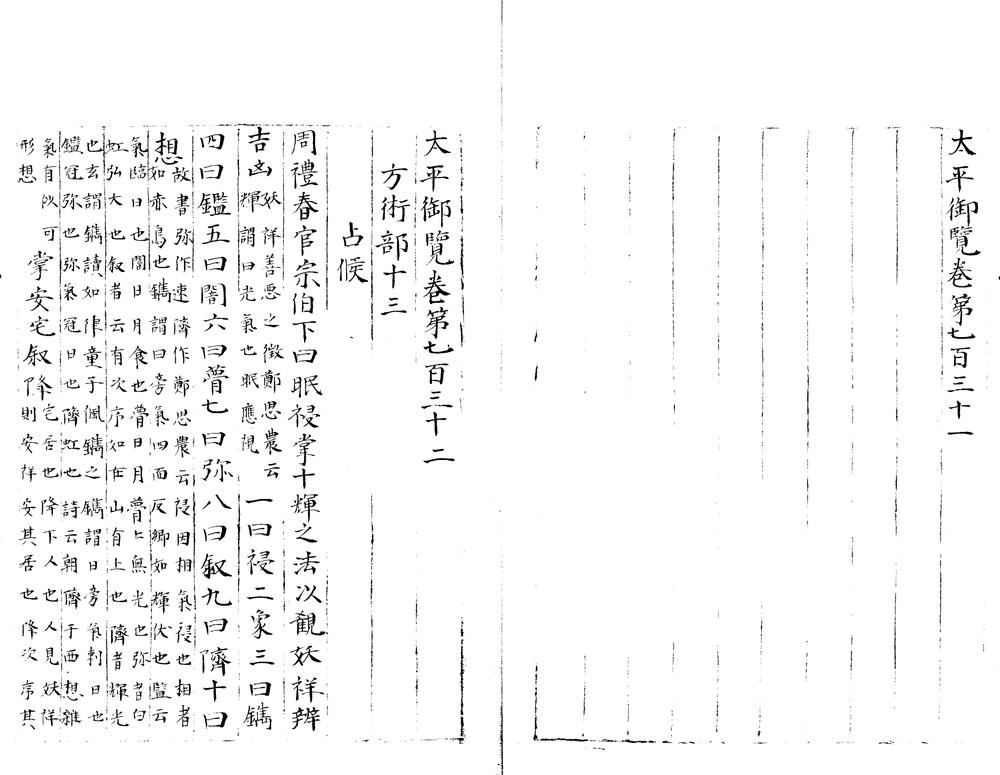 太平御覽卷第七百三十一
太平御覽卷第七百三十二
方術部十三
占候
周禮春官宗伯下曰眠祲掌十輝之法以觀妖祥辨
吉凶妖祥善惡之徵鄭思農云
輝謂日光氣也眠應視
一曰祲二象三曰鐫
四曰鑑五曰闇六曰瞢七曰弥八曰叙九曰隮十曰
想故書弥作速隮作鄭思農云祲因相氣祲也相者
如赤鳥也鐫謂曰旁氣四面反鄉如輝伏也監云
氣臨日也闇日月食也瞢日月瞢〻無光也弥者白
虹弘大也叙者云有次序如在山有上也隮者輝光
也玄謂鐫讀如律童子佩鐫之鐫謂日旁氣刺日也
鑑冠弥也弥氣冠日也隮虹也詩云朝隮于西想雜
氣有似可
形想
掌安宅叙降
宅居也降下人也人見妖祥
則安祥安其居也降次序其